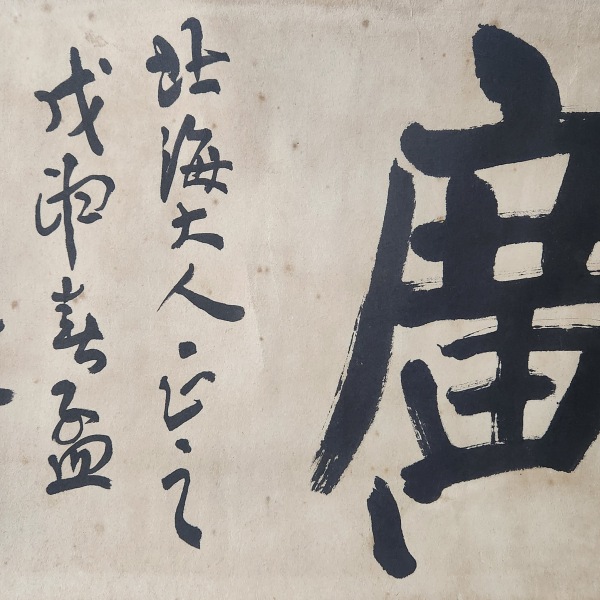 廣
北海大人正之
戊申春孟